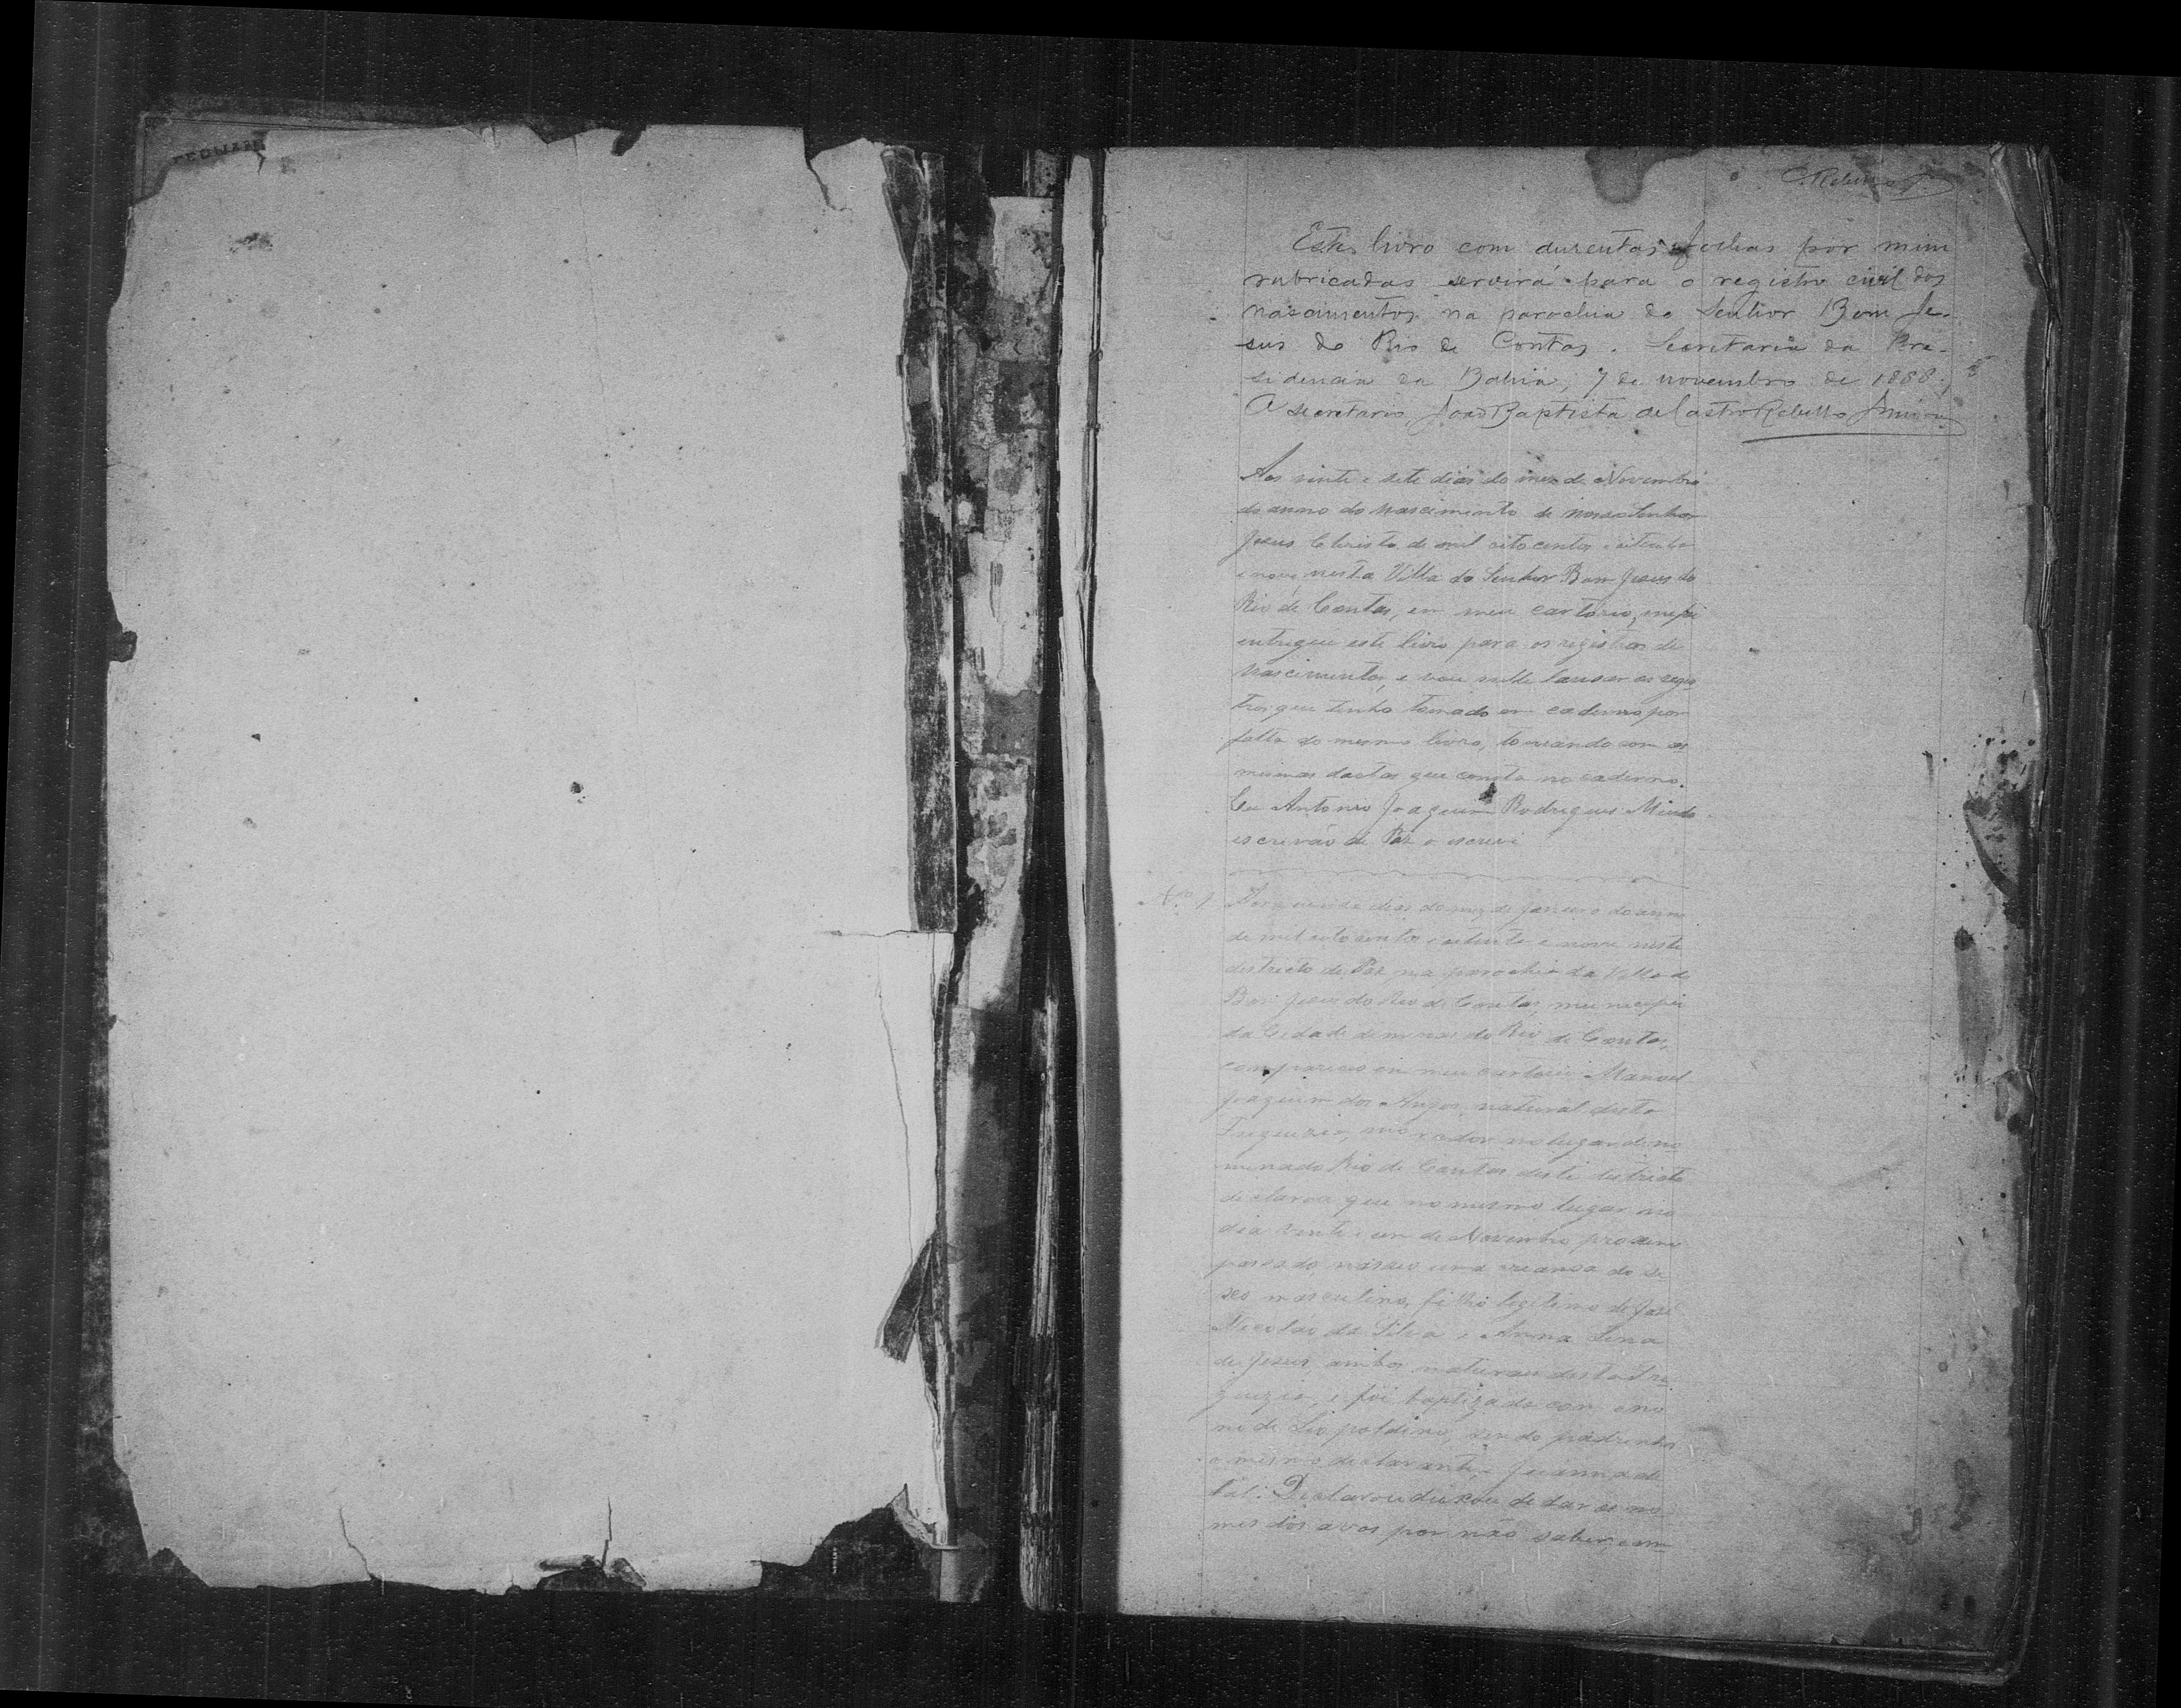 C. Rebello J.
Este livro com duzentas folhas por mim
rubricadas servirá para o registro civil dos
nascimentos na parochia do Senhor Bom Je-
sus do Rio de Contas. Secretaria da Pre-
sidencia da Bahia, 7 de novembro de 1888.
O secretario, João Baptista de Castro Rebello Junior
Aos vinte e sete dias do mez de Novembro
do anno do nascimento de nosso Senhor
Jesus Christo de mil oito centos e oitenta
e nove nesta Villa do Senhor Bom Jesus do
Rio de Contas, em meu cartorio, me foi
entregue este livro para os registros de
nascimentos, e vou nelle lansar os regis
tros que tenho tomado em caderno por
falta do mesmo livro, com as
mesmas dactas que consta no caderno.
Eu Antonio Joaquim Rodrigues
escrivão de Paz o escrevi
Nº 1
Aos quinze dias do mez de Janeiro do anno
de mil oito centos e oitenta e nove neste
destricto de Paz, na parochia da Villa do
Bom Jesus do Rio de Contas, municipio
da Cidade de minas do Rio de Contas,
compareceo em meu cartorio Manoel
Joaquim dos Anjos, natural desta
Freguezia, morador no lugar deno
minado Rio de Contas deste destricto
declarou que no mesmo lugar no
dia vinte e um de Novembro proximo
passado nasceo uma creansa do se
xo masculino, filho legitimo de José
Nicolao da Silva e Anna
de Jesus, ambos naturaes desta Fre
guezia, e foi baptizado com o no
me de Leopoldino, sendo padrinhos
o mesmo declarante e Joanna de
tal. Declarou deixou de dar os no
mes dos avos por não saber, e em